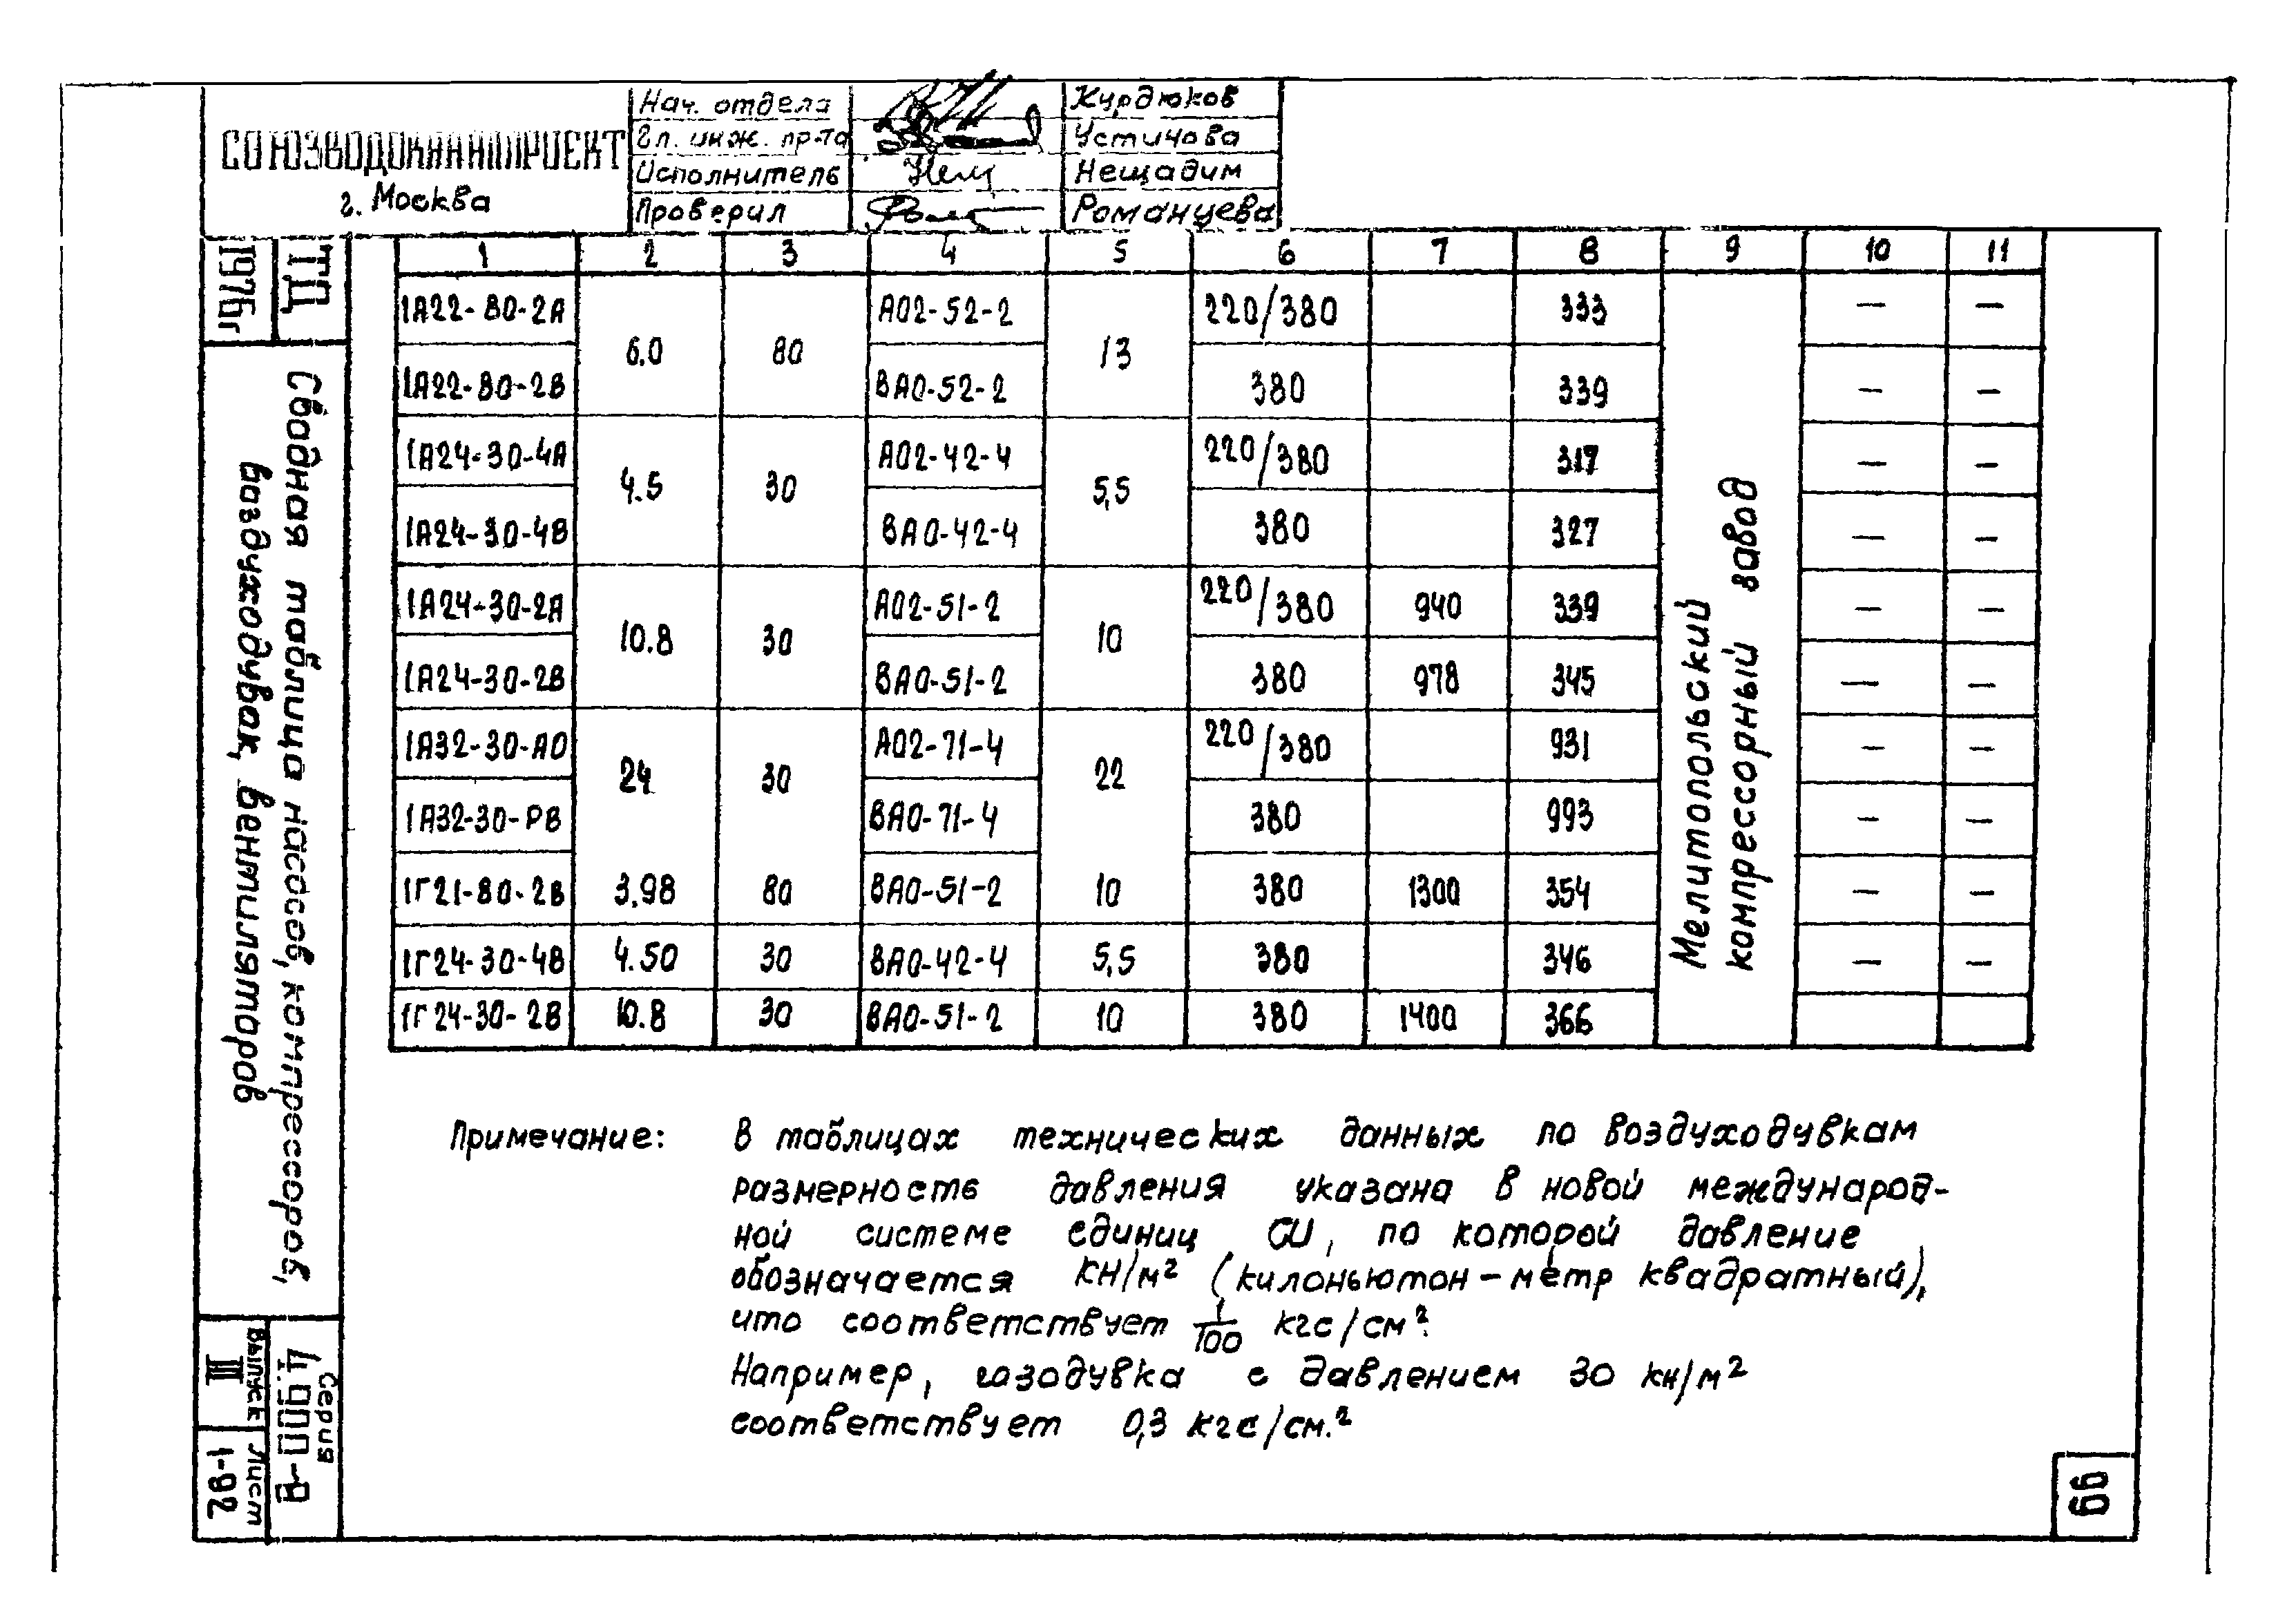 СОЮЗВОДОКАНАЛПРОЕКТ
г. Москва
Нач. отдела Курдюков
Гл. инж. пр-та Устинова
Исполнитель Нещадим
Проверил Романцева
ТД
1976г
Сводная таблица насосов, компрессоров,
воздуходувак, вентиляторов
Серия
4.900-8
Выпуск
III
Лист
1-92
1 2 3 4 5 6 7 8 9 10 11
1А22-80-2А 6.0 80 А02-52-2 13 220/380 333 — —
1А22-80-2В ВА0-52-2 380 339 — —
1А24-30-4А 4.5 30 А02-42-4 5,5 220/380 317 — —
1А24-30-4В ВА0-42-4 380 327 — —
1А24-30-2А 10.8 30 А02-51-2 10 220/380 940 339 — —
1А24-30-2В ВА0-51-2 380 978 345 — —
1А32-30-А0 24 30 А02-71-4 22 220/380 931 — —
1А32-30-РВ ВА0-71-4 380 993 — —
1Г21-80-2В 3.98 80 ВА0-51-2 10 380 1300 354 — —
1Г24-30-4В 4.50 30 ВА0-42-4 5,5 380 346 — —
1Г24-30-2В 10.8 30 ВА0-51-2 10 380 1400 366
Мелитопольский
компрессорный завод
Примечание: В таблицах технических данных по воздуходувкам
размерность давления указана в новой международ-
ной системе единиц СИ, по которой давление
обозначается КН/м² (килоньютон-метр квадратный),
что соответствует 1/100 кгс/см².
Например, газодувка с давлением 30 кн/м²
соответствует 0,3 кгс/см.²
66